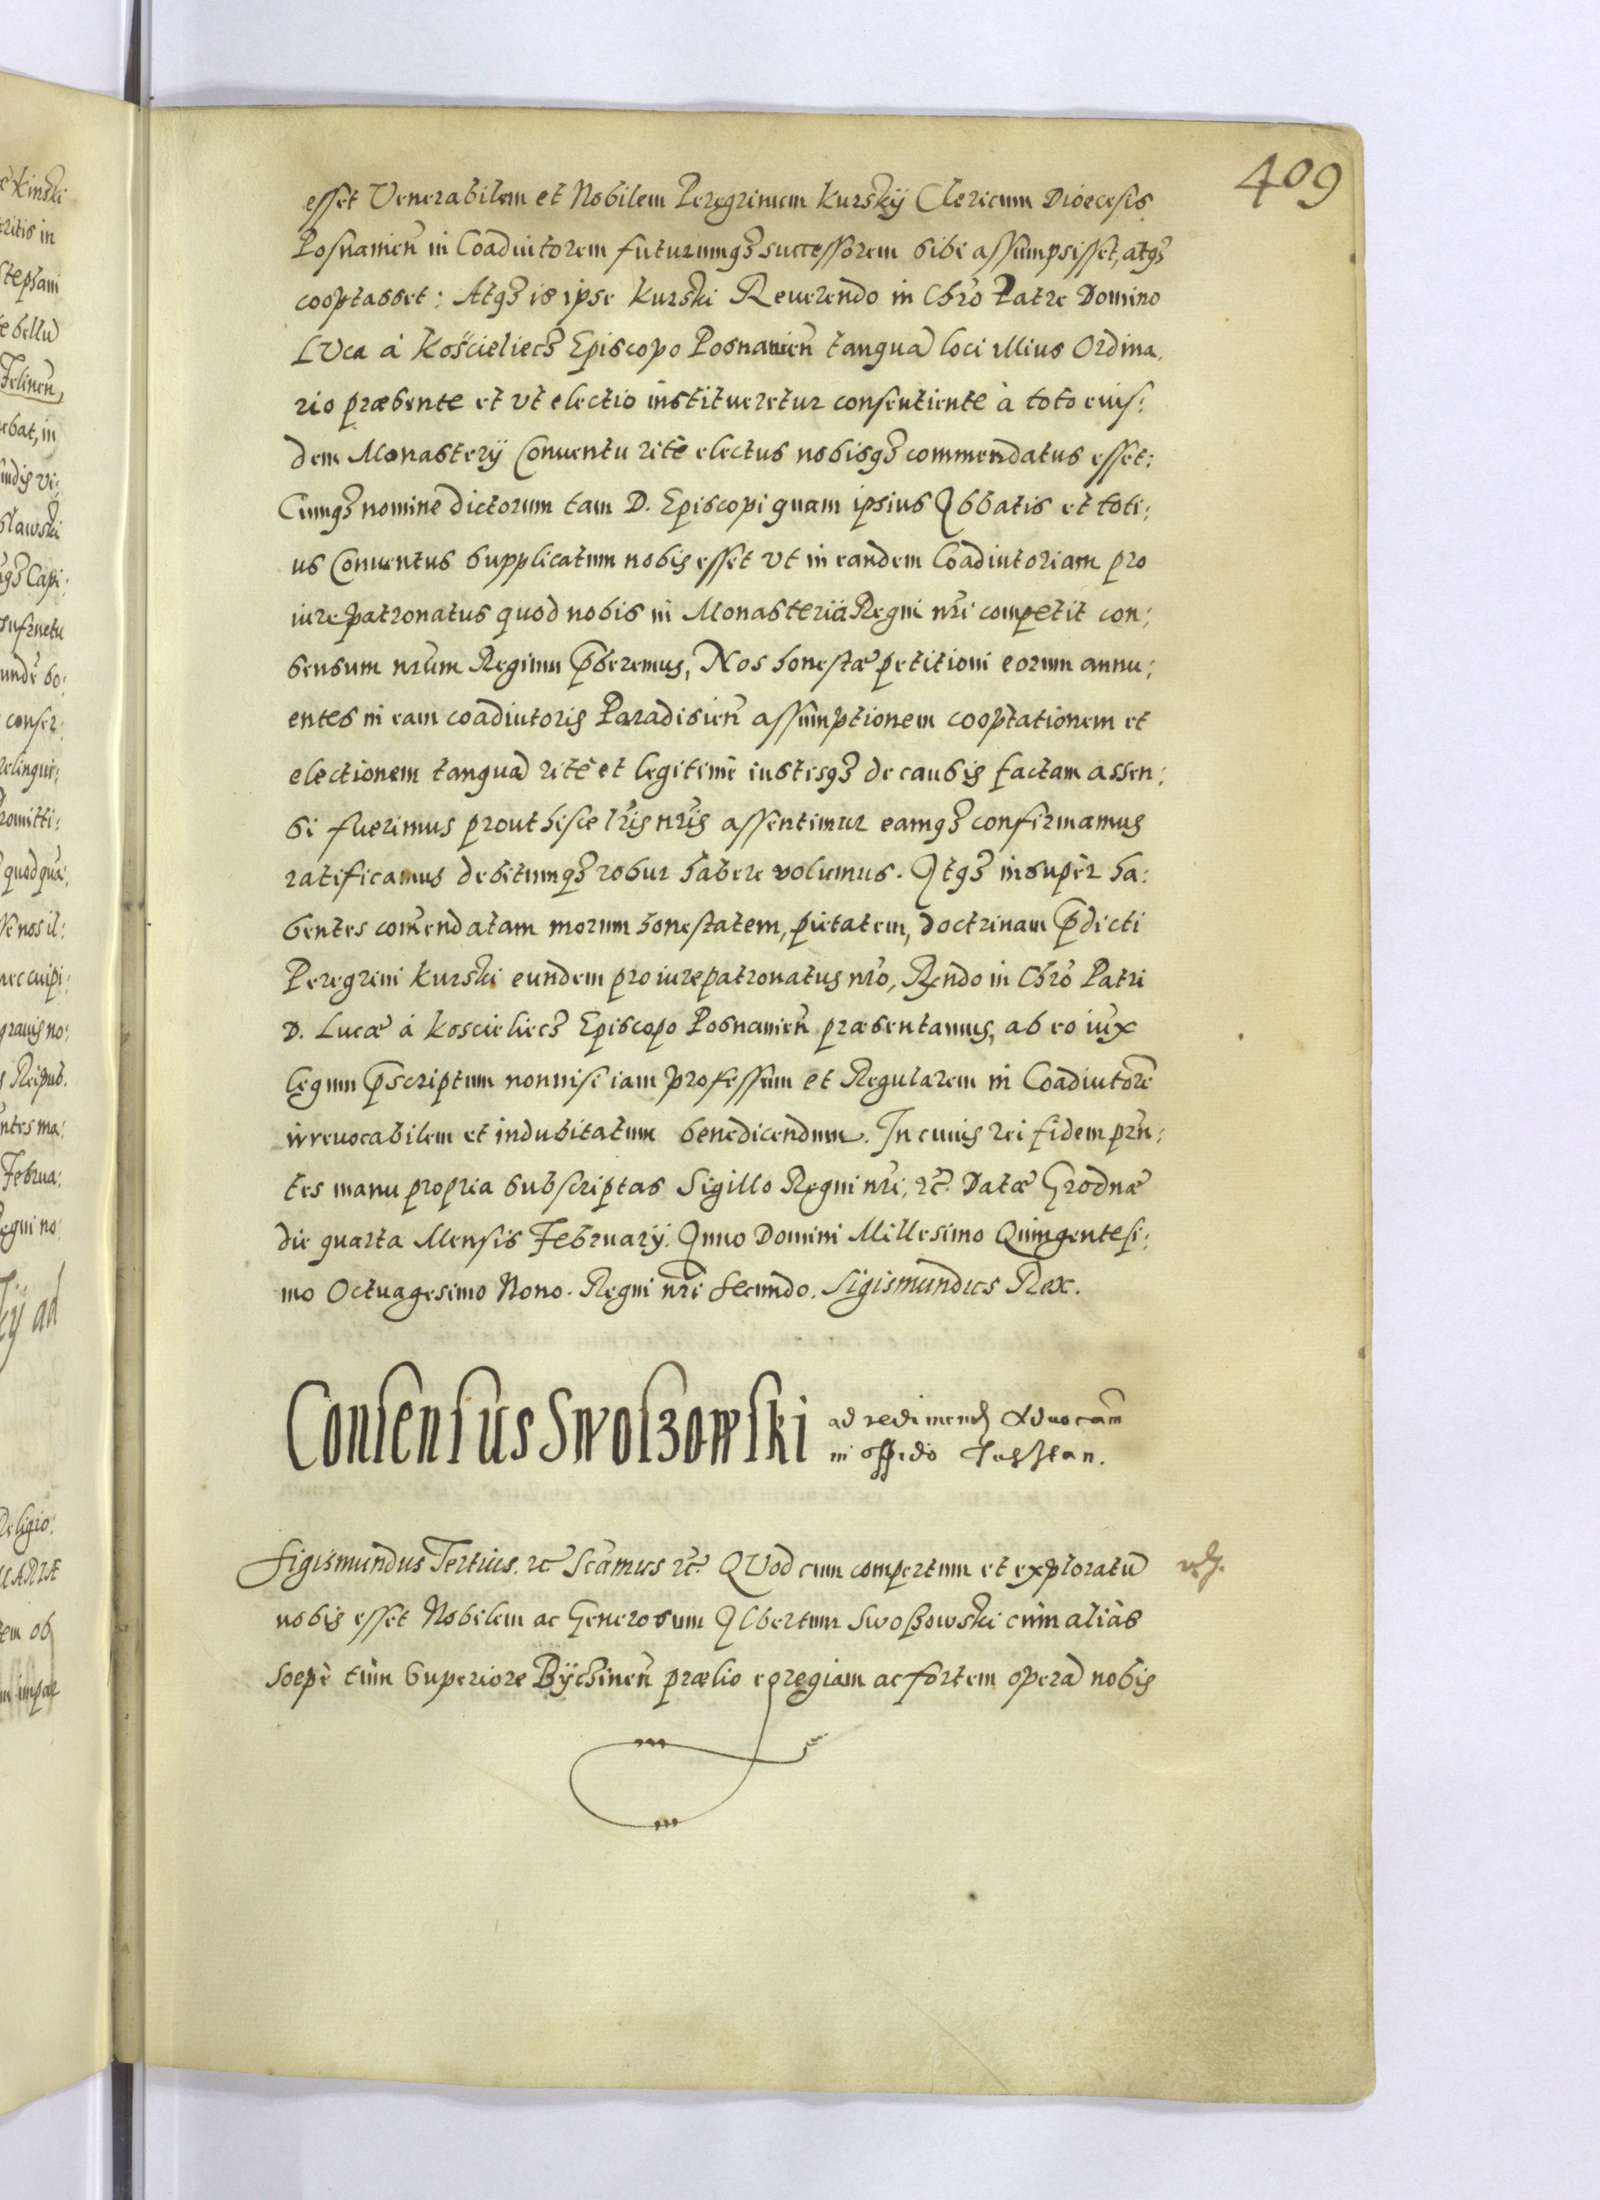 409
esset Venerabilem et Nobilem Peregrinum Kurskÿ Clericum Dioecesis
Posnanien̄ in Coadiutorem futurumqʒ successorem sibi assumpsisset, atqʒ
cooptasset: Atqʒ is ipse Kurski Reuerendo in Chrō Patre Domino
LVca à Kościeliecʒ Episcopo Posnanien̄ tanquā loci illius Ordina,
rio præbente et vt electio institueretur consentiente à toto eius:
dem Monasterÿ Conuentu ritè electus nobisqʒ commendatus esset:
Cumqʒ nomine dictorum tam D. Episcopi quam ipsius Abbatis et toti:
us Conuentus supplicatum nobis esset vt in eandem Coadiutoriam pro
iurepatronatus quod nobis in Monasteria Regni nr̄i competit con:
sensum nr̄um Regium p̄beremus, Nos honestæ petitioni eorum annu:
entes in eam coadiutoris Paradisien̄ assumptionem cooptationem et
electionem tanquā ritè et legitimè iustisqʒ de causis factam assen:
si fuerimus prout hisce lr̄is nr̄is assentimur eamqʒ confirmamus
ratificamus debitumqʒ robur habere volumus. Atqʒ insupèr ha:
bentes com̄endatam morum honestatem, pietatem, doctrinam p̄dicti
Peregrini Kurski eundem pro iurepatronatus nr̄o, Rēndo in Chrō Patri
D. Lucæ à Koscieliecʒ Episcopo Posnanien̄ præsentamus, ab eo iux̄
legum p̄scriptum nonnisi iam professum et Regularem in Coadiutorē
irreuocabilem et indubitatum benedicendum. In cuius rei fidem prn̄:
tes manu propria subscriptas Sigillo Regni nr̄i, rc̄. Datæ Grodnæ
die quarta Mensis Februarÿ. Anno Domini Millesimo Quingentesi:
mo Octuagesimo Nono. Regni nr̄i secundo. Sigismundus Rex.
Consensus Swoszowski ad redimend̄ Aduocām
in oppido
Sigismundus Tertius. rc̄ Sc̄amus rc̄. QVod cum compertum et exploratū
nobis esset Nobilem ac Generosum Albertum Swoszowski cùm aliàs
soepè tùm superiore Bÿcʒinen̄ prælio egregiam ac fortem operā nobis